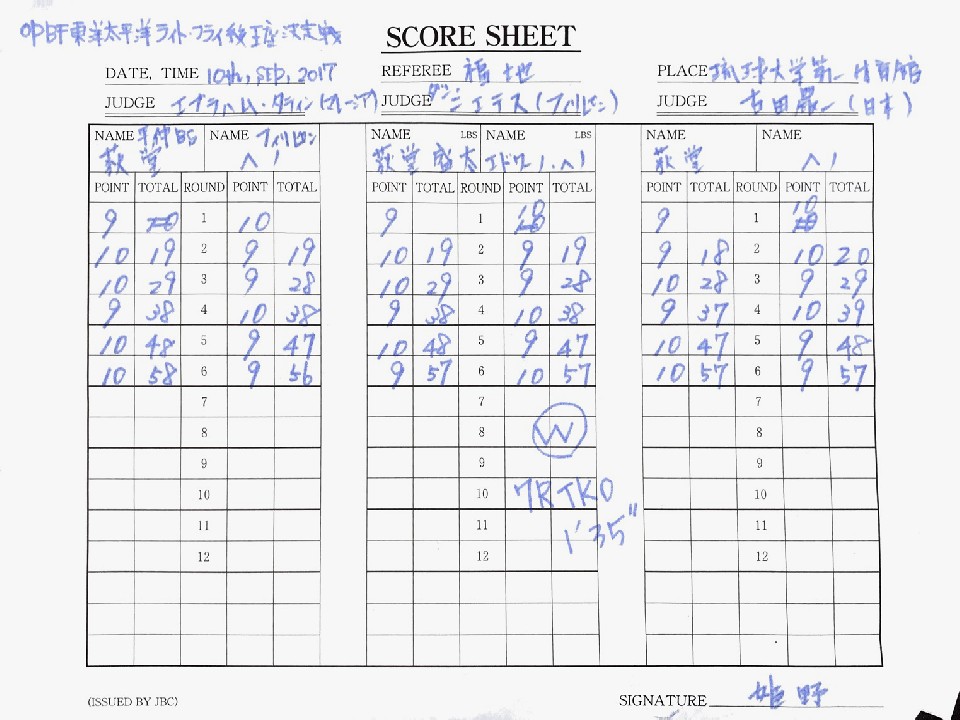 OPBF東洋太平洋ライト・フライ級王座決定戦
SCORE SHEET
DATE, TIME 10th, SEP, 2017 REFEREE 福地 PLACE 琉球大学第一体育館
JUDGE エブラハム・ JUDGE (フィリピン) JUDGE 吉田 (日本)
NAME 平仲BS NAME フィリピン NAME LBS NAME LBS NAME NAME
萩堂 ヘノ 萩堂 盛太 エドワノ・ヘノ 萩堂 ヘノ
POINT TOTAL ROUND POINT TOTAL POINT TOTAL ROUND POINT TOTAL POINT TOTAL ROUND POINT TOTAL
9 1 10 9 1 10 9 1 10
10 19 2 9 19 10 19 2 9 19 9 18 2 10 20
10 29 3 9 28 10 29 3 9 28 10 28 3 9 29
9 38 4 10 38 9 38 4 10 38 9 37 4 10 39
10 48 5 9 47 10 48 5 9 47 10 47 5 9 48
10 58 6 9 56 9 57 6 10 57 10 57 6 9 57
7 7 7
8 8 W 8
9 9 9
10 10 7R TKO 10
11 11 1'35" 11
12 12 12
(ISSUED BY JBC) SIGNATURE 姫野